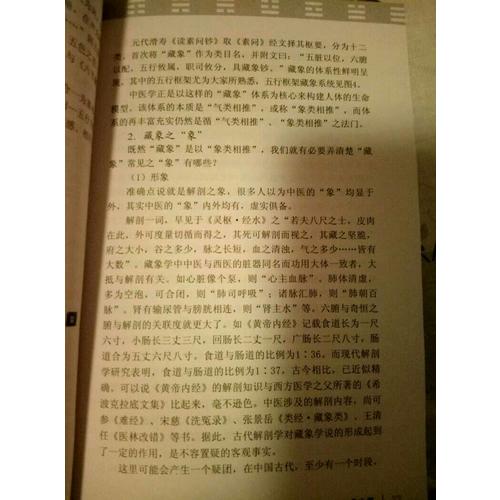 元代滑寿《读素问钞》取《素问》经文择其枢要，分为十二
类，首次将“藏象”作为类目名，并附文曰：“五脏以位，六腑
以配，五行攸属，职司攸分，具藏象钞。”藏象的体系性鲜明呈
现。其中的五行框架尤为大家所熟悉，五行框架藏象系统见图4。
中医学正是以这样的“藏象”体系为核心来构建人体的生命
模型。该体系的本质是“气类相推”，或称“象类相推”，而体
系的再丰富充实仍然是循“气类相推”、“象类相推”之法门。
2. 藏象之“象”
既然“藏象”是以“象类相推”，我们就有必要弄清楚“藏
象”常见之“象”有哪些？
（1）形象
准确点说就是解剖之象，很多人以为中医的“象”均显于
外，其实中医的“象”内外均有，虚实俱备。
解剖一词，早见于《灵枢·经水》之“若夫八尺之士，皮肉
在此，外可度量切循而得之，其死可解剖而视之，其藏之坚脆，
府之大小，谷之多少，脉之长短，血之清浊，气之多少……皆有
大数”。藏象学中中医与西医的脏器同名而功用大体一致者，大
抵与解剖有关。如心脏像个泵，则“心主血脉”。肺体清虚，
多为空泡，可合闭，则“肺司呼吸”；诸脉汇肺，则“肺朝百
脉”。肾有输尿管与膀胱相连，则“肾主水”等。六腑与奇恒之
腑与解剖的关联度就更大了。如《黄帝内经》记载食道长为一尺
六寸，小肠长三丈三尺，回肠长二丈一尺，广肠长二尺八寸，肠
道合为五丈六尺八寸。食道与肠道的比例为1∶36。而现代解剖
学研究表明，食道与肠道的比例为1∶37，古今相比，已近似精
确。可以说《黄帝内经》的解剖知识与西方医学之父所著的《希
波克拉底文集》比起来，毫不逊色。中医涉及的解剖内容，尚可
参《难经》、宋慈《洗冤录》、张景岳《类经·藏象类》、王清
任《医林改错》等书。据此，古代解剖学对藏象学说的形成起到
了一定的作用，是不容置疑的客观事实。
这里可能会产生一个疑团，在中国古代，至少有一个时段，